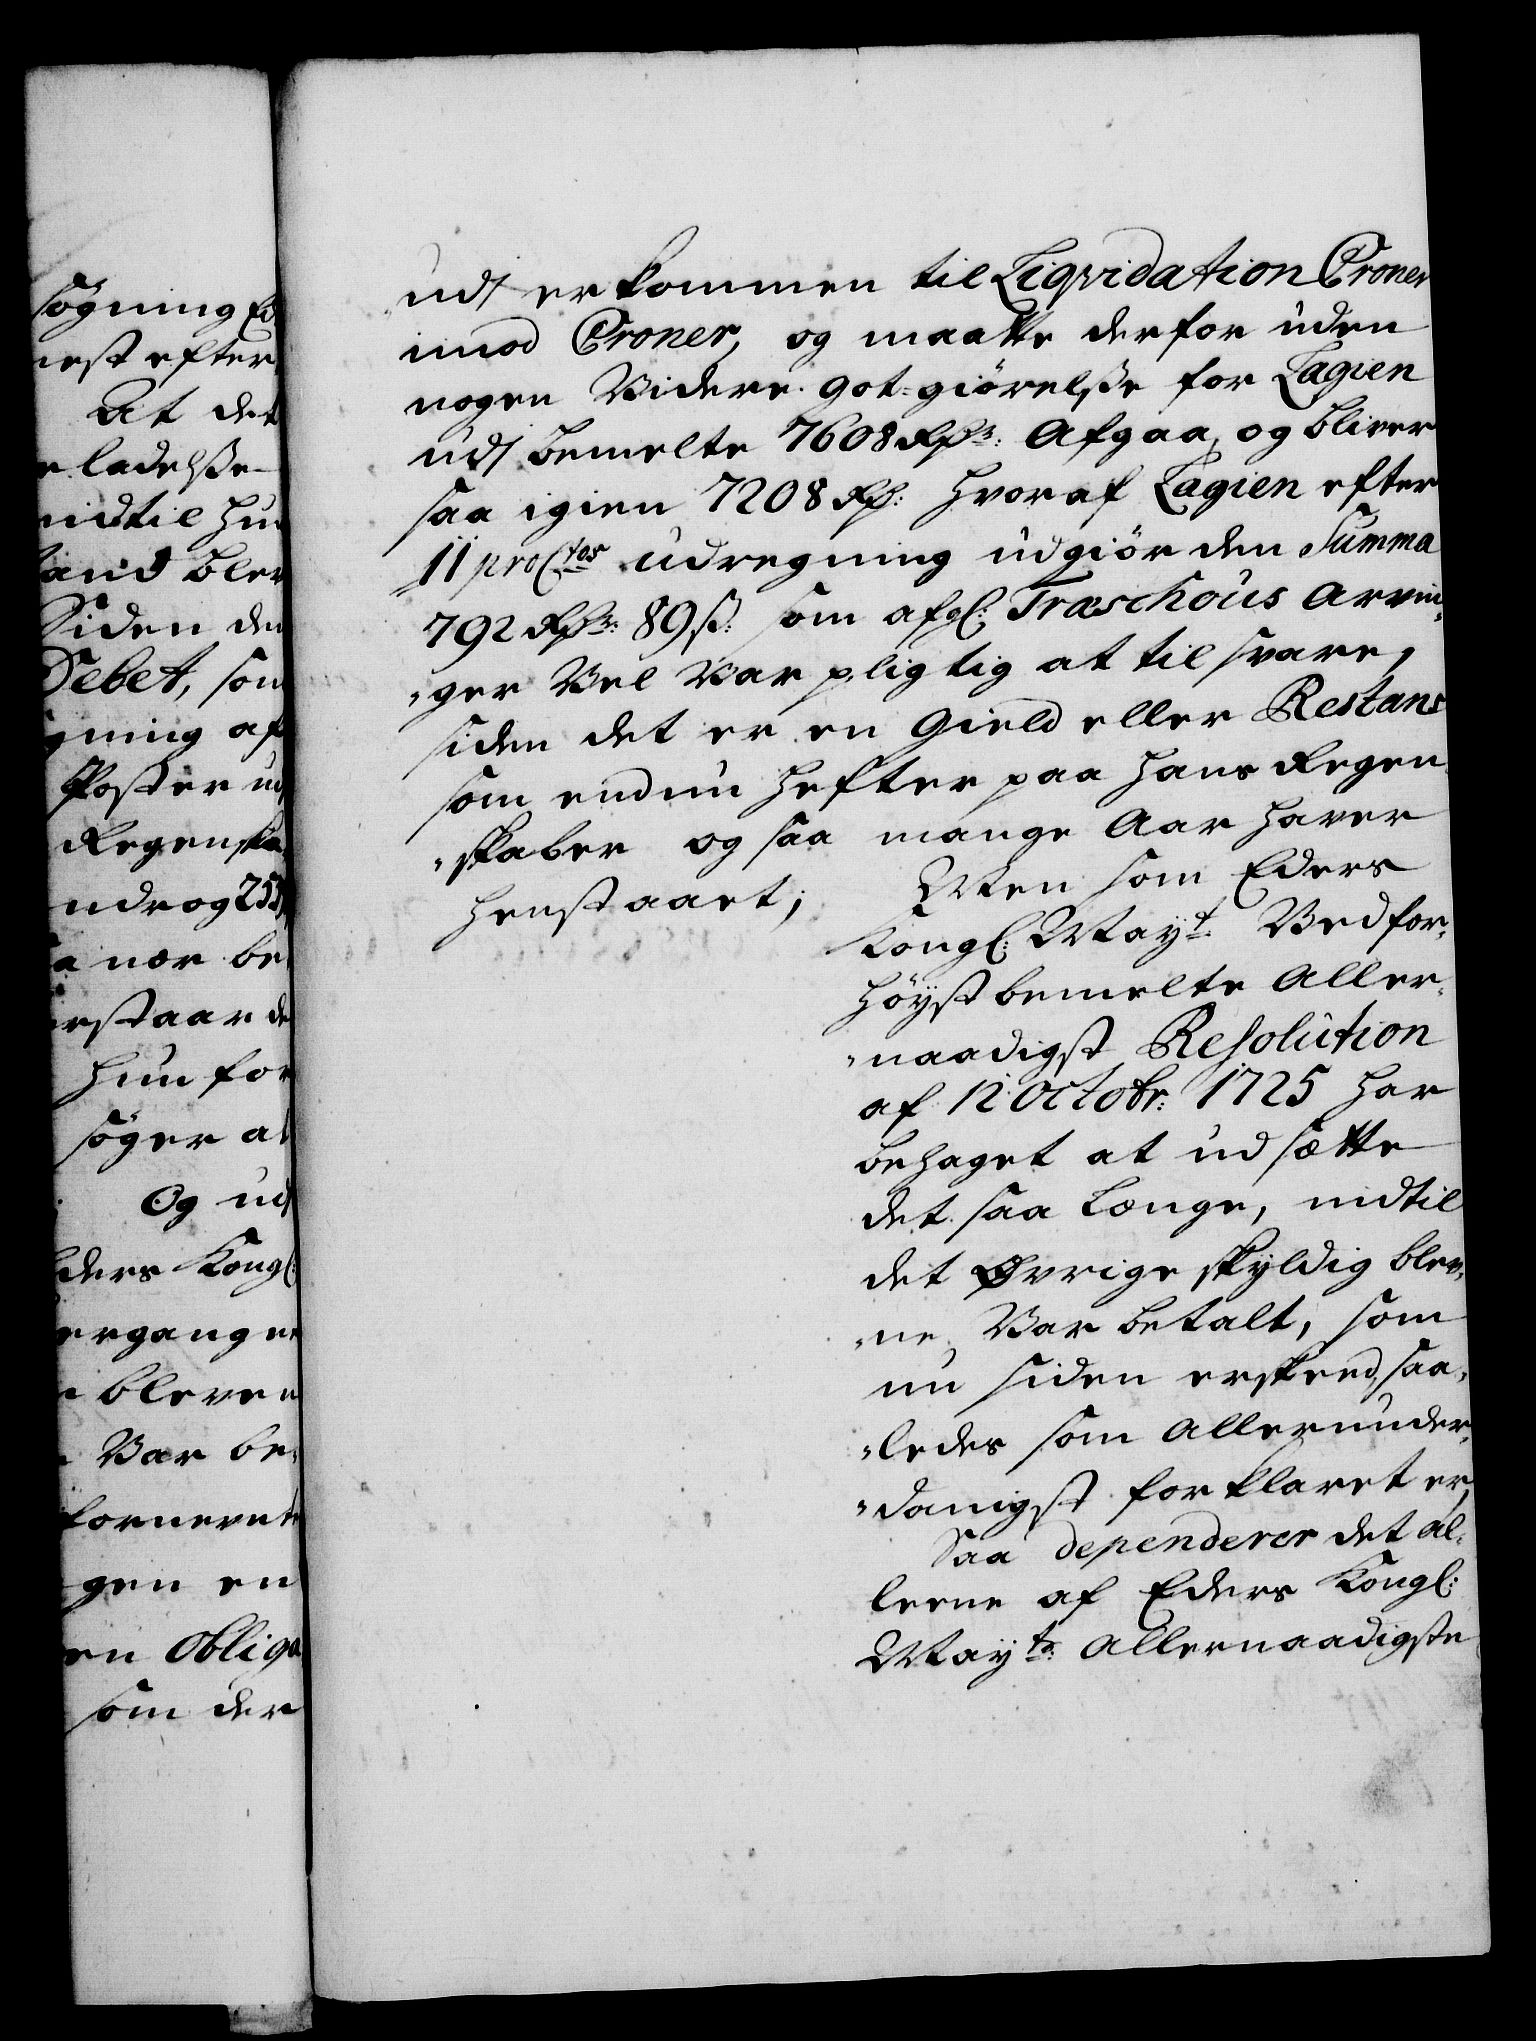 søgning Ed
nest efter
At det
e ladelsse
indtil hun
land blev
Siden den
Debet, som
gning af
Poster ud
Regenska
ndrog 255
a nær be
erstaar de
hun for
søger at
Og ud
Eders Kongl:
ergangne
e bleven
Var be,
fornevnte
gen en
en Obliga
som der
uds er kommen til Liqvidation Croner
imod Croner, og maatte derfor uden
nogen Videre got-giørelsse for Lagien
uds bemelte 7608 Rdr: Afgaa, og bliver
saa igien 7208 Rd: hvoraf Lagien efter
11 proCtos udregning udgiør den Summa
792 Rdr: 89 ss: som afgl: Træschous Arvin,
,ger Vel Var pligtig at til svare,
siden det er en Gield eller Restans
som endnu hefter paa hans Regen,
,skaber og saa mange Aar haver
henstaaet;
Men som Eders
Kongl: Mayt: Ved for,
høyst bemelte Aller,
,naadigst Resolution
af 12 Octobr: 1725 har
behaget at udsætte
det saa Længe, indtil
det Øvrige skyldig blev,
,ne Var betalt, som
nu siden er skeed, saa,
,ledes som Allerunder,
,danigst forklaret er,
Saa dependerer det al,
leene af Eders Kongl:
Mayts: Allernaadigste